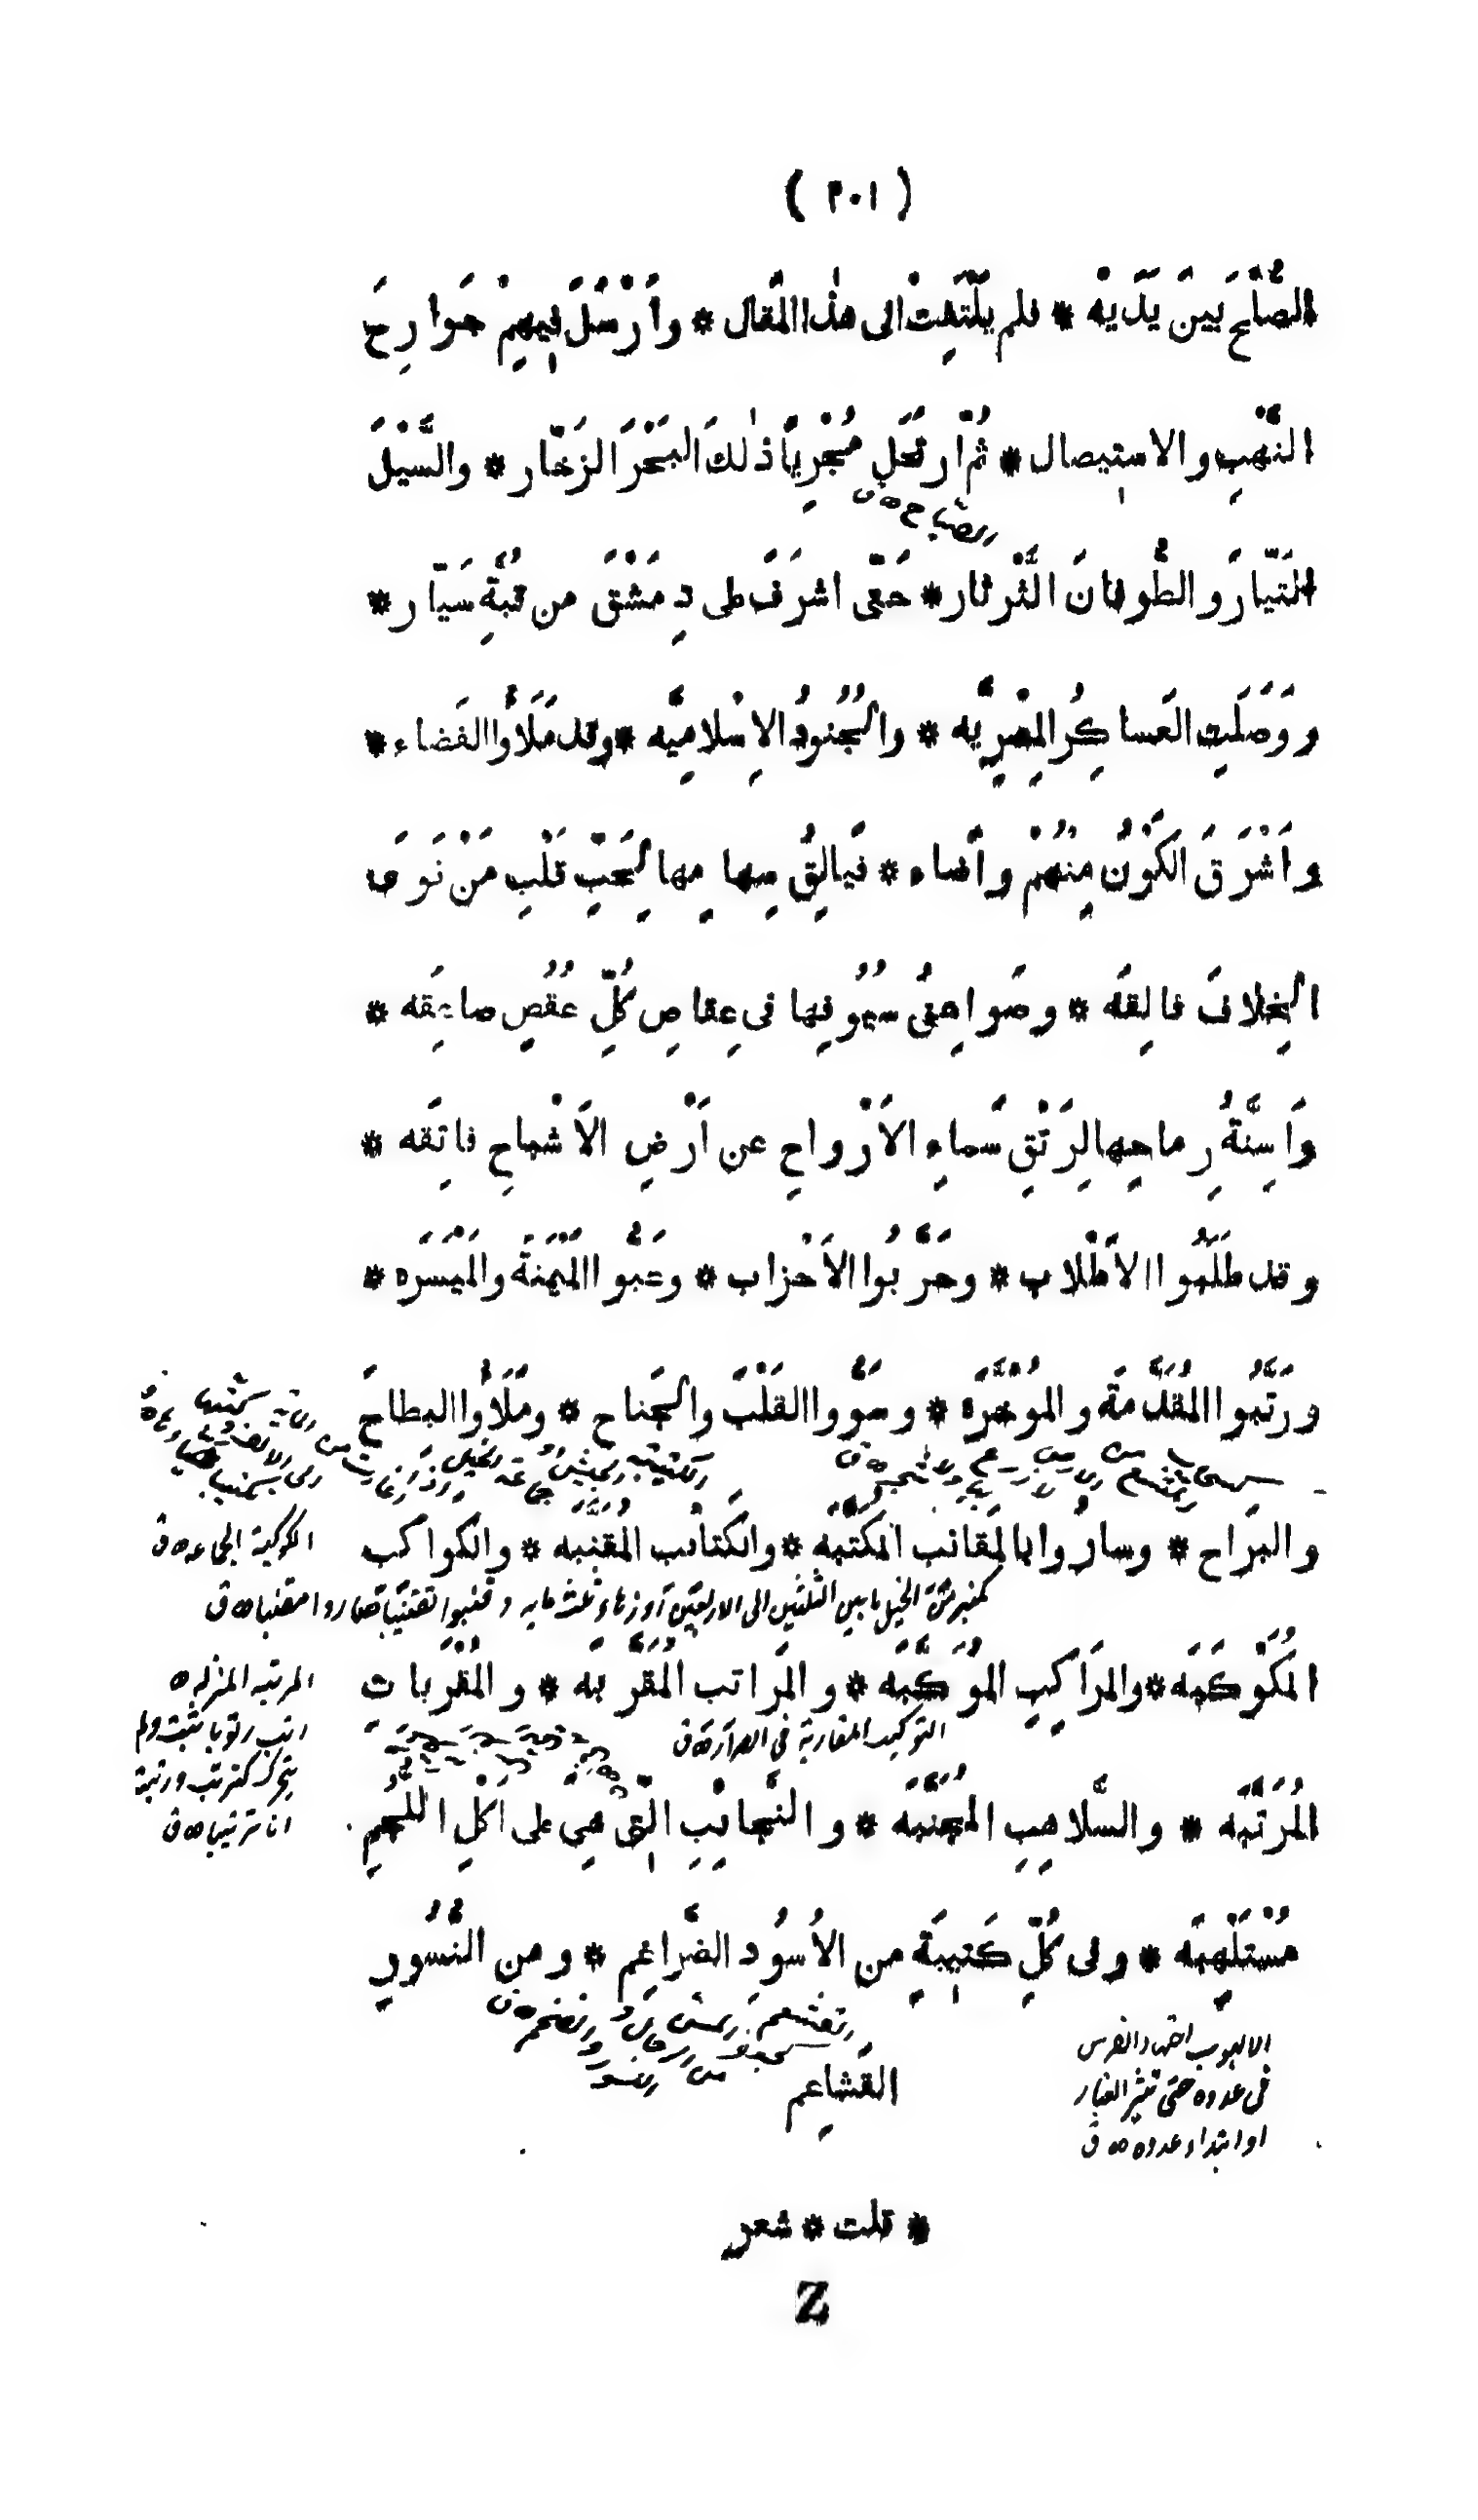 ( ٢٠١ )
الصُّلْحَ بَينَ يَدَيْه * فلم يَلْتَفِتْ الى هٰذا المَقال * واَرْسَلَ فِيهِمْ جَوارِحَ
النَّهْبِ والاستِيصال * ثُمَّ ارتَحَلَ مُجْرِياً ذٰلكَ البَحْرَ الزَخّار * والسَّيْلَ
التَيّارَ والطُّوفانَ الثَّرْثار * حَتّى اشرَفَ على دِمَشْقَ من قُبَّةِ سَيّار *
ووَصَلَتِ العَساكِرُ المِصْرِيَّه * والجُنودُ الاِسْلامِيَّه * وقد مَلَأُوا الفَضاء *
واَشْرَقَ الكَوْنُ مِنْهُمْ واَضاء * فَيالِقُ سِهامِها لِحَبِّ قَلْبِ مَنْ نَوَى
الخِلافَ فالِقَه * وصَواعِقُ سُيُوفِها فى عِقاصِ كُلِّ عُقُصٍ صاعِقَه *
واَسِنَّةُ رِماحِها لِرَتْقِ سَماءِ الاَرْواحِ عن اَرْضِ الاَشْباحِ فاتِقَه *
وقد طَلَّبُوا الاَطْلاب * وحَزَّبُوا الاَحْزاب * وعَبَّوُا المَيْمَنَةَ والمَيْسَرَه *
ورَتَّبُوا المُقَدَّمَةَ والمُوَخَّرَه * وسَوَّوا القَلْبَ والجَناح * ومَلَأُوا البطاحَ
والبَراح * وسارُوا بالمَقانب المُكَتَّبَه * والكَتائب المُقَنَّبَه * والكَواكب
الكوكبة الجماعه ق
المُكَوْكَبَه * والمَراكِبِ المُوَكَّبَه * والمَراتب المُقَرَّبَه * والمُقْرَبات
المرتبه المنزله ه
المُرَتَّبَه * والسَّلاهِبِ المُجَنَّبَه * والنَّجائِبِ الّتى هِى على اَكْلِ اللُجُمِ
مُسْتَلْهِبَه * وفى كُلِّ كَتِيبَةٍ من الاُسُودِ الضَّراغِم * ومن النُّسُورِ
القَشاعِم
الالهوب اجتهاد الفرس
فى عدوه حتى تثير الغبار
او ابتداء عدوه ق
* قلت * شعر
Z